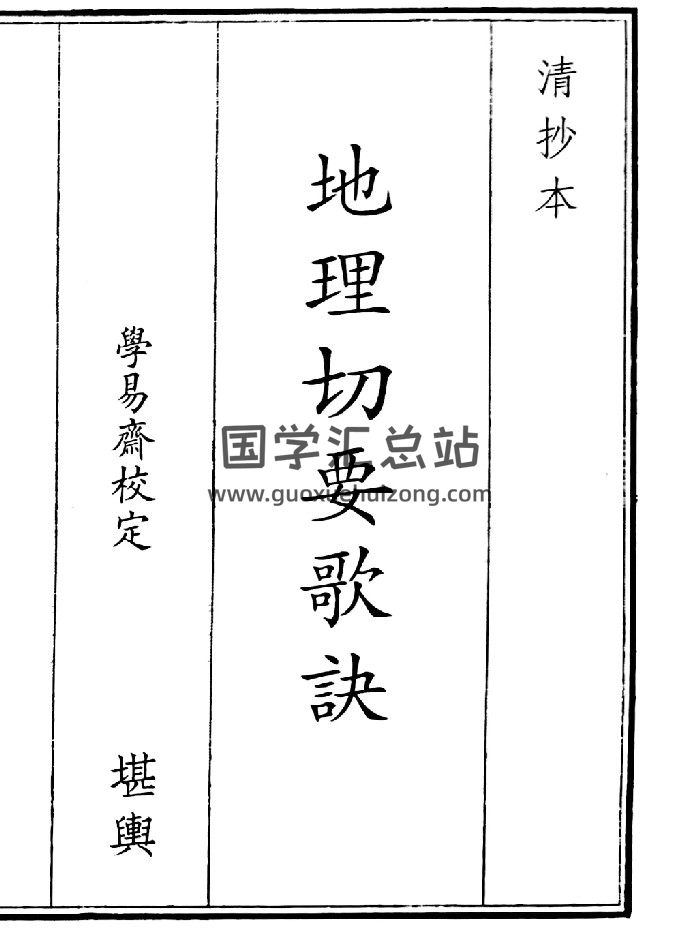 清抄本
地理切要歌訣
學易齋校定
堪輿
国学汇总站
www.guoxuehuizong.com